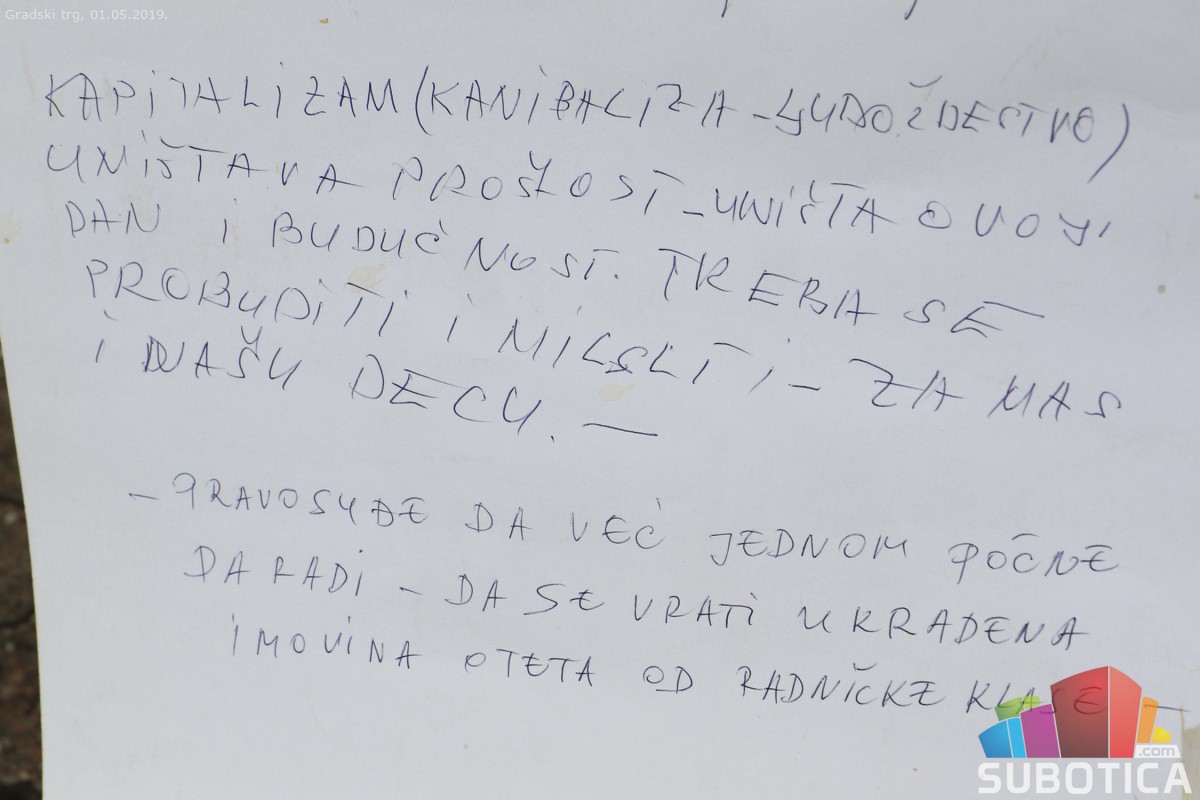 Gradski trg, 01.05.2019.
KAPITALIZAM (KANIBALIZA - LJUDOŽDESTVO)
UNIŠTAVA PROŠLOST - UNIŠTA OVOJI
DAN I BUDUĆNOST. TREBA SE
PROBUDITI I MISLITI - ZA NAS
I NAŠU DECU. —
- PRAVOSUĐE DA VEĆ JEDNOM POČNE
DA RADI - DA SE VRATI UKRADENA
IMOVINA OTETA OD RADNIČKE KLASE -
SUBOTICA
.com